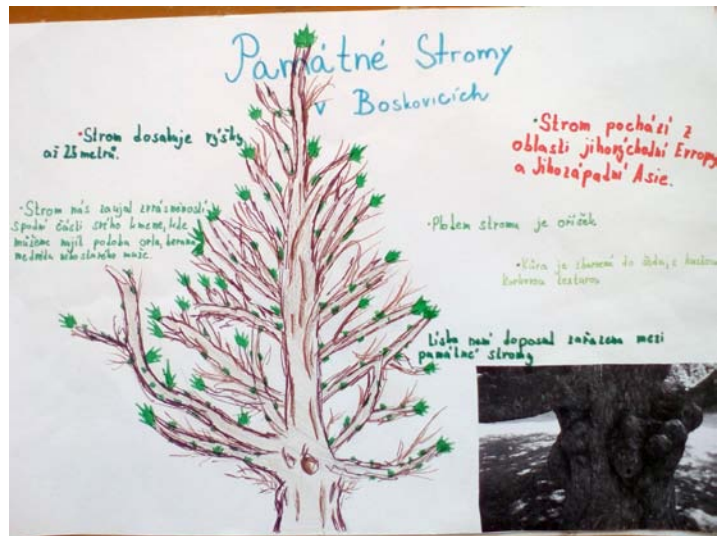 Památné Stromy
v Boskovicích
•Strom dosahuje výšky
až 25 metrů.
•Strom pochází z
oblasti jihovýchodní Evropy
a Jihozápadní Asie.
•Strom nás zaujal zvrásněností
spodní části svého kmene, kde
můžeme najít podobu orla, berana,
medvěda nebo starého muže.
•Plodem stromu je oříšek
•Kůra je zbarvená do šeda, s
texturou
Líska není doposud zařazena mezi
památné stromy